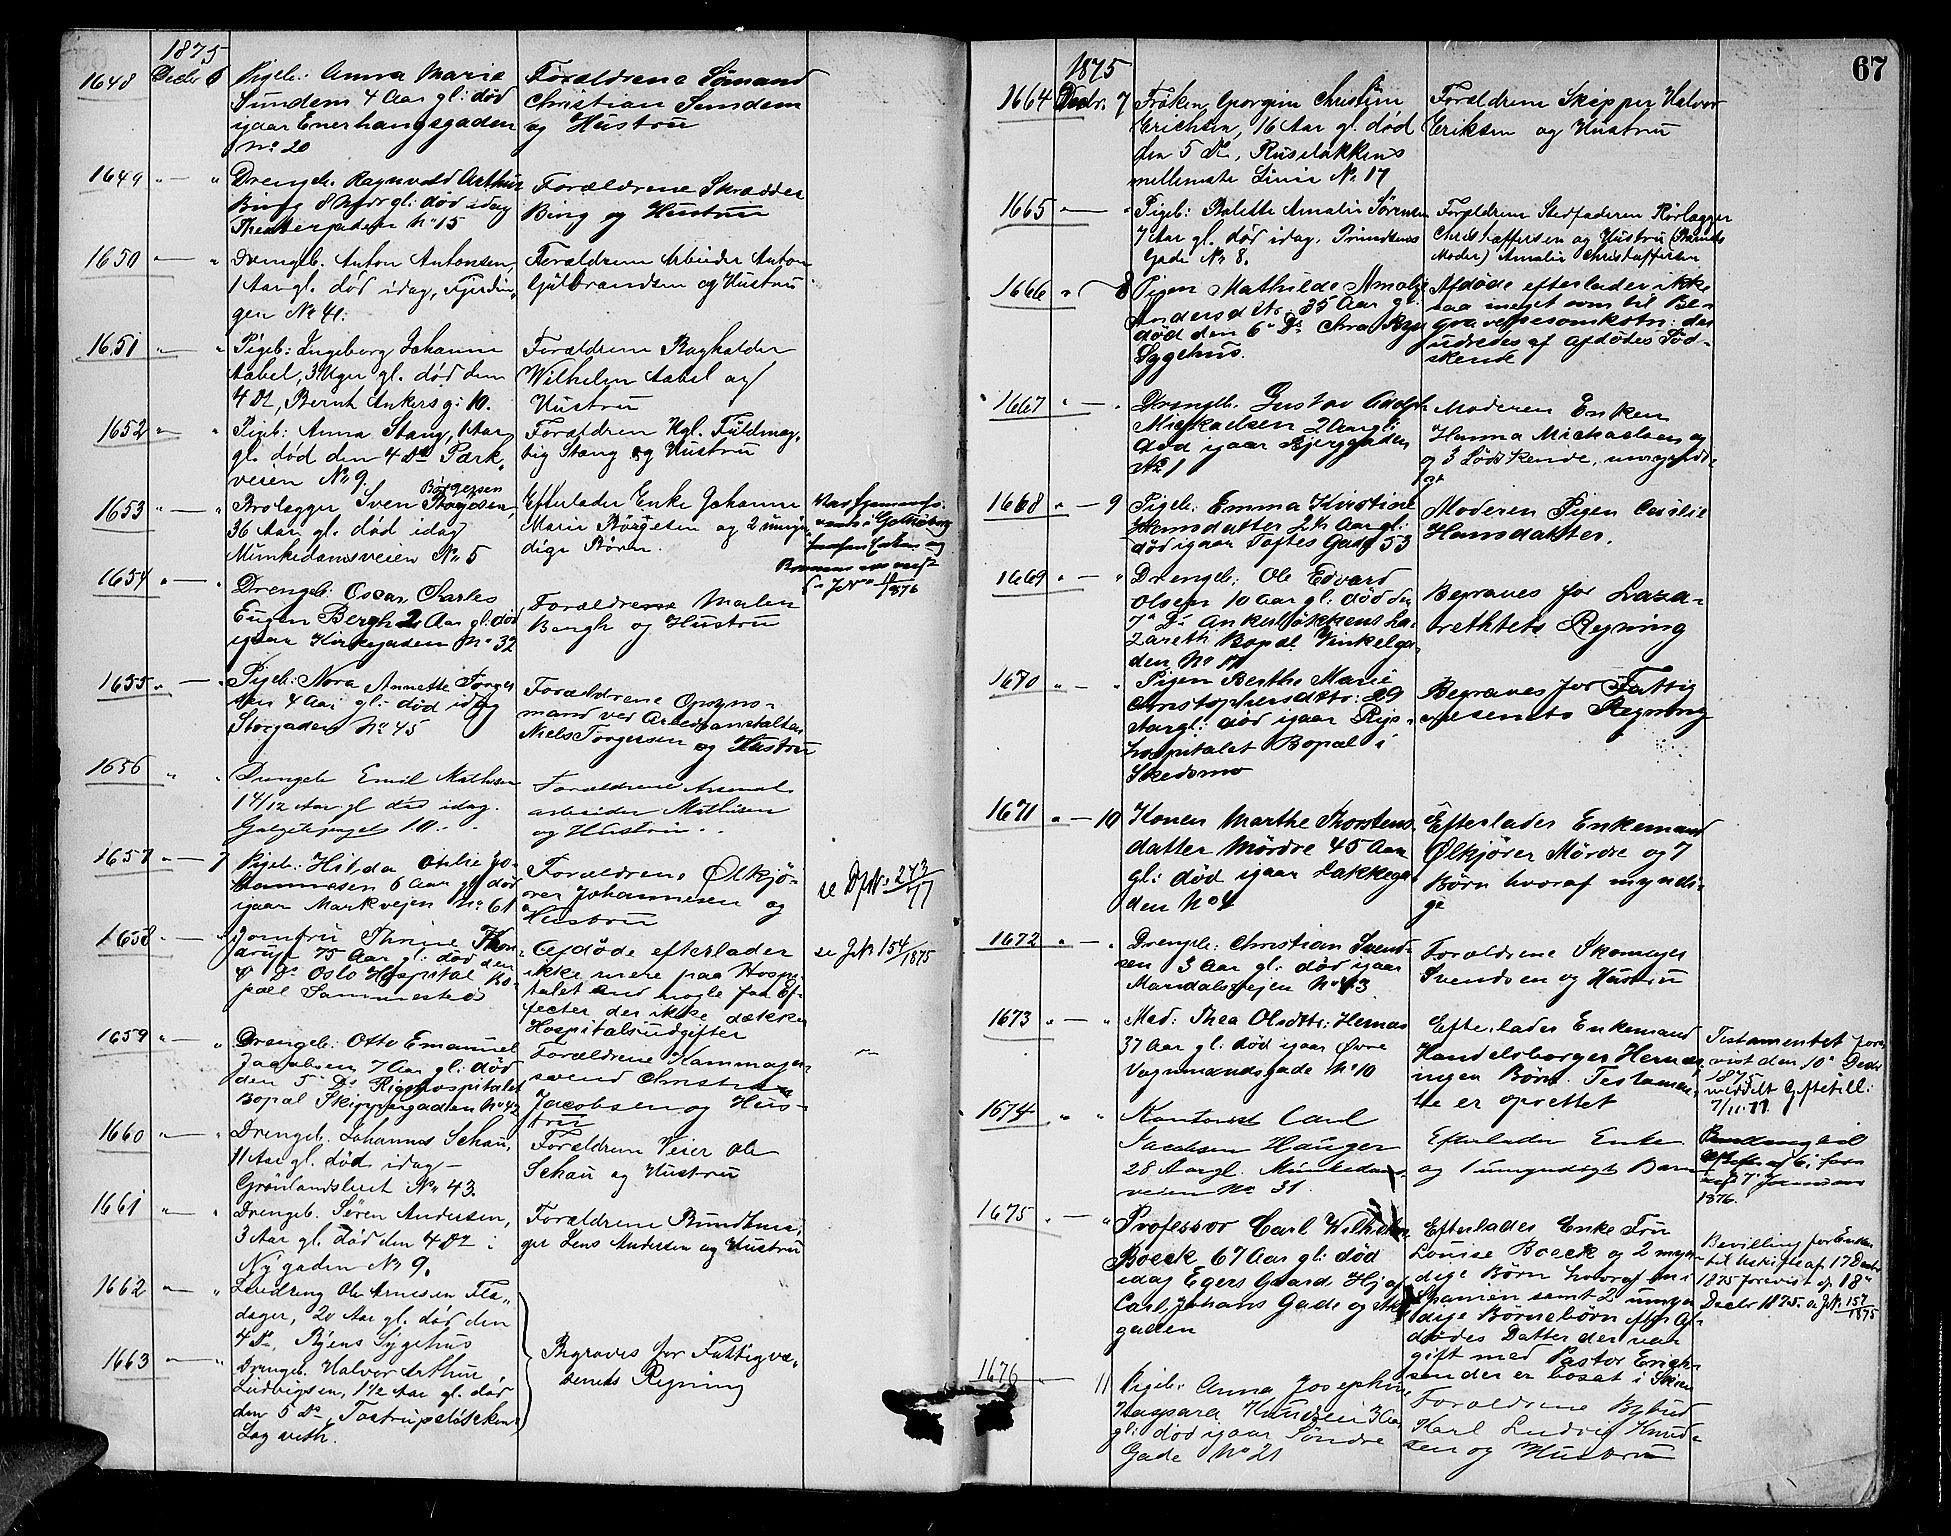 1875
1648 Decbr 6 Pigeb: Anna Marie
Sundem 4 Aar gl: død
igaar Enerhaugsgaden
No 20
Forældrene Sömand
Christian Sundem
og Hustru
1649 " — " Drengeb. Ragnvald Arthur
Bing 8 Aar gl: død idag
Theatergaden No 15
Forældrene Skrædder
Bing og Hustru
1650 " — " Drengeb. Anton Antonsen,
1 Aar gl. død idag, Fjerdin,
gen No 41.
Forældrene Arbeider Anton
Gulbrandsen og Hustru
1651 " — " Pigeb: Ingeborg Johanne
Aabel, 3 Uger gl. død den
4 Ds, Bernt Ankers g: 10.
Forældrene Boghalder
Wilhelm Aabel og
Hustru
1652 " — " Pigeb: Anna Stang, 1 Aar
gl. død den 4 Ds Park,
veien No 9.
Forældrene Kgl. Fuldmæg,
tig Stang og Hustru
1653 " — " Brolægger Sven Börgesen,
36 Aar gl. død idag
Munkedamsveien No 5
Efterlader Enke Johanne
Marie Börgesen og 2 umyn,
dige Börn.
1876
1654 " — " Drengeb: Oscar Charles
Eugen Bergh 2 Aar gl: død
igaar Kirkegaden No 32
Forældrene Maler
Bergh og Hustru
1655 " — " Pigeb: Nora Annette Torger
sen 4 Aar gl: død idag
Storgaden No 45
Forældrene Opsyns-
mand ved Arbeidsanstalten
Niels Torgersen og Hustru
1656 " " Drengeb Emil Mathisen
1 4/12 Aar gl død idag.
10.
Forældrene Arsenal
arbeider Mathisen
og Hustru.
1657 " — 7 Pigeb: Hilda Otilie Jo-
hannesen 6 Aar gl: død
igaar Markvejen No 61
Forældrene Ølkjö-
rer Johannesen og
Hustru
se 273/77
1658 " — " Jomfru Thrine Thor
75 Aar gl: død den
4 Ds Oslo Hospital Bo-
pæl Sammesteds
Afdøde efterlader
ikke mere paa Hospi-
talet end nogle faa Ef-
fecter der ikke dækker
Hospitalsudgifter
se J.No 154/1875
1659 " — " Drengeb: Otto Emanuel
Jacobsen 7 Aar gl: død
den 5 Ds Rigshospitalet
Bopæl Skippergaden No 42
Forældrene Kammager
svend Christian
Jacobsen og Hus-
tru
1660 " — " Drengeb. Johannes Schau,
11 Aar gl. død idag –
Grønlandsleret No 43.
Forældrene Veier Ole
Schau og Hustru
1661 " — " Drengeb. Søren Andersen,
3 Aar gl. død den 4 Ds i
Nygaden No 9.
Forældrene Bundtma,
ger Jens Andersen og Hustru
1662 " — " Lærdreng Ole Arnesen Fla,
dager, 20 Aar gl. død den
4 Ds, Byens Sygehus
1663 " — " Drengeb. Halvor Arthur
Ludvigsen, 1 1/2 Aar gl. død
den 5 Ds, Tostrupsløkkens
Lazareth.
Begraves for Fattigvæ,
senets Regning
67
1875
1664 Decbr. 7 Frøken Georgine Christine
Erichsen, 16 Aar gl. død
den 5 Ds, Ruseløkkens
mellemste Linie No 17
Forældrene Skipper Halvor
Eriksen og Hustru
1665 " — " Pigeb: Bolette Amalie Sørensen
7 Aar gl. død idag,
Gade No 8.
Forældrene Stedfaderen Rørlægger
Christoffersen og Hustru (Barnets
Moder) Amalie Christoffersen
1666 " — 8 Pigen Mathilde Amalie
Andersdtr. 35 Aar gl:
død den 6 Ds Chra Byes
Sygehus.
Afdøde efterlader ikke
saa meget som til Be-
gravelsesomkstn: der
udredes af Afdødes Sød-
skende
1667 " — " Drengeb. Gustav Adolph
Michaelsen 2 Aar gl:
død igaar Bjerggaden
No 1
Moderen Enken
Hanna Michaelsen og
3 Södskende, umyndi-
ge
1668 " — 9 Pigeb: Emma Kirstine
Hansdatter 2 1/2 Aar gl:
død igaar Toftes Gade 53
Moderen Pigen Cecilie
Hansdatter.
1669 " — " Drengeb: Ole Edvard
Olsen 10 Aar gl: død den
7 Ds Ankerløkkens La-
zareth Bopæl Vinkelga-
den No 17
Begraves for Laza-
rethtets Regning
1670 " " Pigen Berthe Marie
Christophersdtr: 29
Aar gl: død igaar Rigs-
hospitalet Bopæl i
Skedsmo
Begraves for Fattig
væsenets Regning
1671 " — 10 Konen Marthe Thorstens
datter Mördre 45 Aar
gl: død igaar Lakkega-
den No 4
Efterlader Enkemand
Ølkjører Mördre og 7
Börn hvoraf myndi-
ge
1672 " — " Drengeb: Christian Svend-
sen 3 Aar gl: død igaar
Maridalsvejen No 43
Forældrene Skomager
Svendsen og Hustru
1673 " — " Mad: Thea Olsdtr: Hernæs
37 Aar gl: død igaar Øvre
Vognmandsgade No 10
Efterlader Enkemand
Handelsborger Hernæs
ingen Börn. Testamen-
te er oprettet
Testamentet fore,
vist den 10 Decbr
1875
meddelt
7/11.77
1674 " " Kontorist Carl
Jacobsen Hauger
28 Aar gl. Munkedams-
veien No 31.
Efterlader Enke
og 1 umyndigt Barn
1876.
1675 " — " Professor Carl Wilhelm
Boeck 67 Aar gl: død
idag Egers Gaard Hj: af
Carl Johans Gade og
gaden
Efterlader Enke Fru
Louise Boeck og 2 myn
dige Börn hvoraf en i
Spanien samt 2 umyn
dige Börnebörn efter Af-
dødes Datter der var
gift med Pastor Erich-
sen der er bosat i Skien
Bevilling for Enken
til Uskifte af 17 Decbr
1875 forevist d. 18
Decbr 1875. se J.No 157/1875
1676 — 11 Pigeb: Anna Josephine
Kaspara Knudsen 3 Aar
gl: død igaar Söndre
Gade No 21
Forældrene Bybud
Karl Ludvig Knud-
sen og Hustru